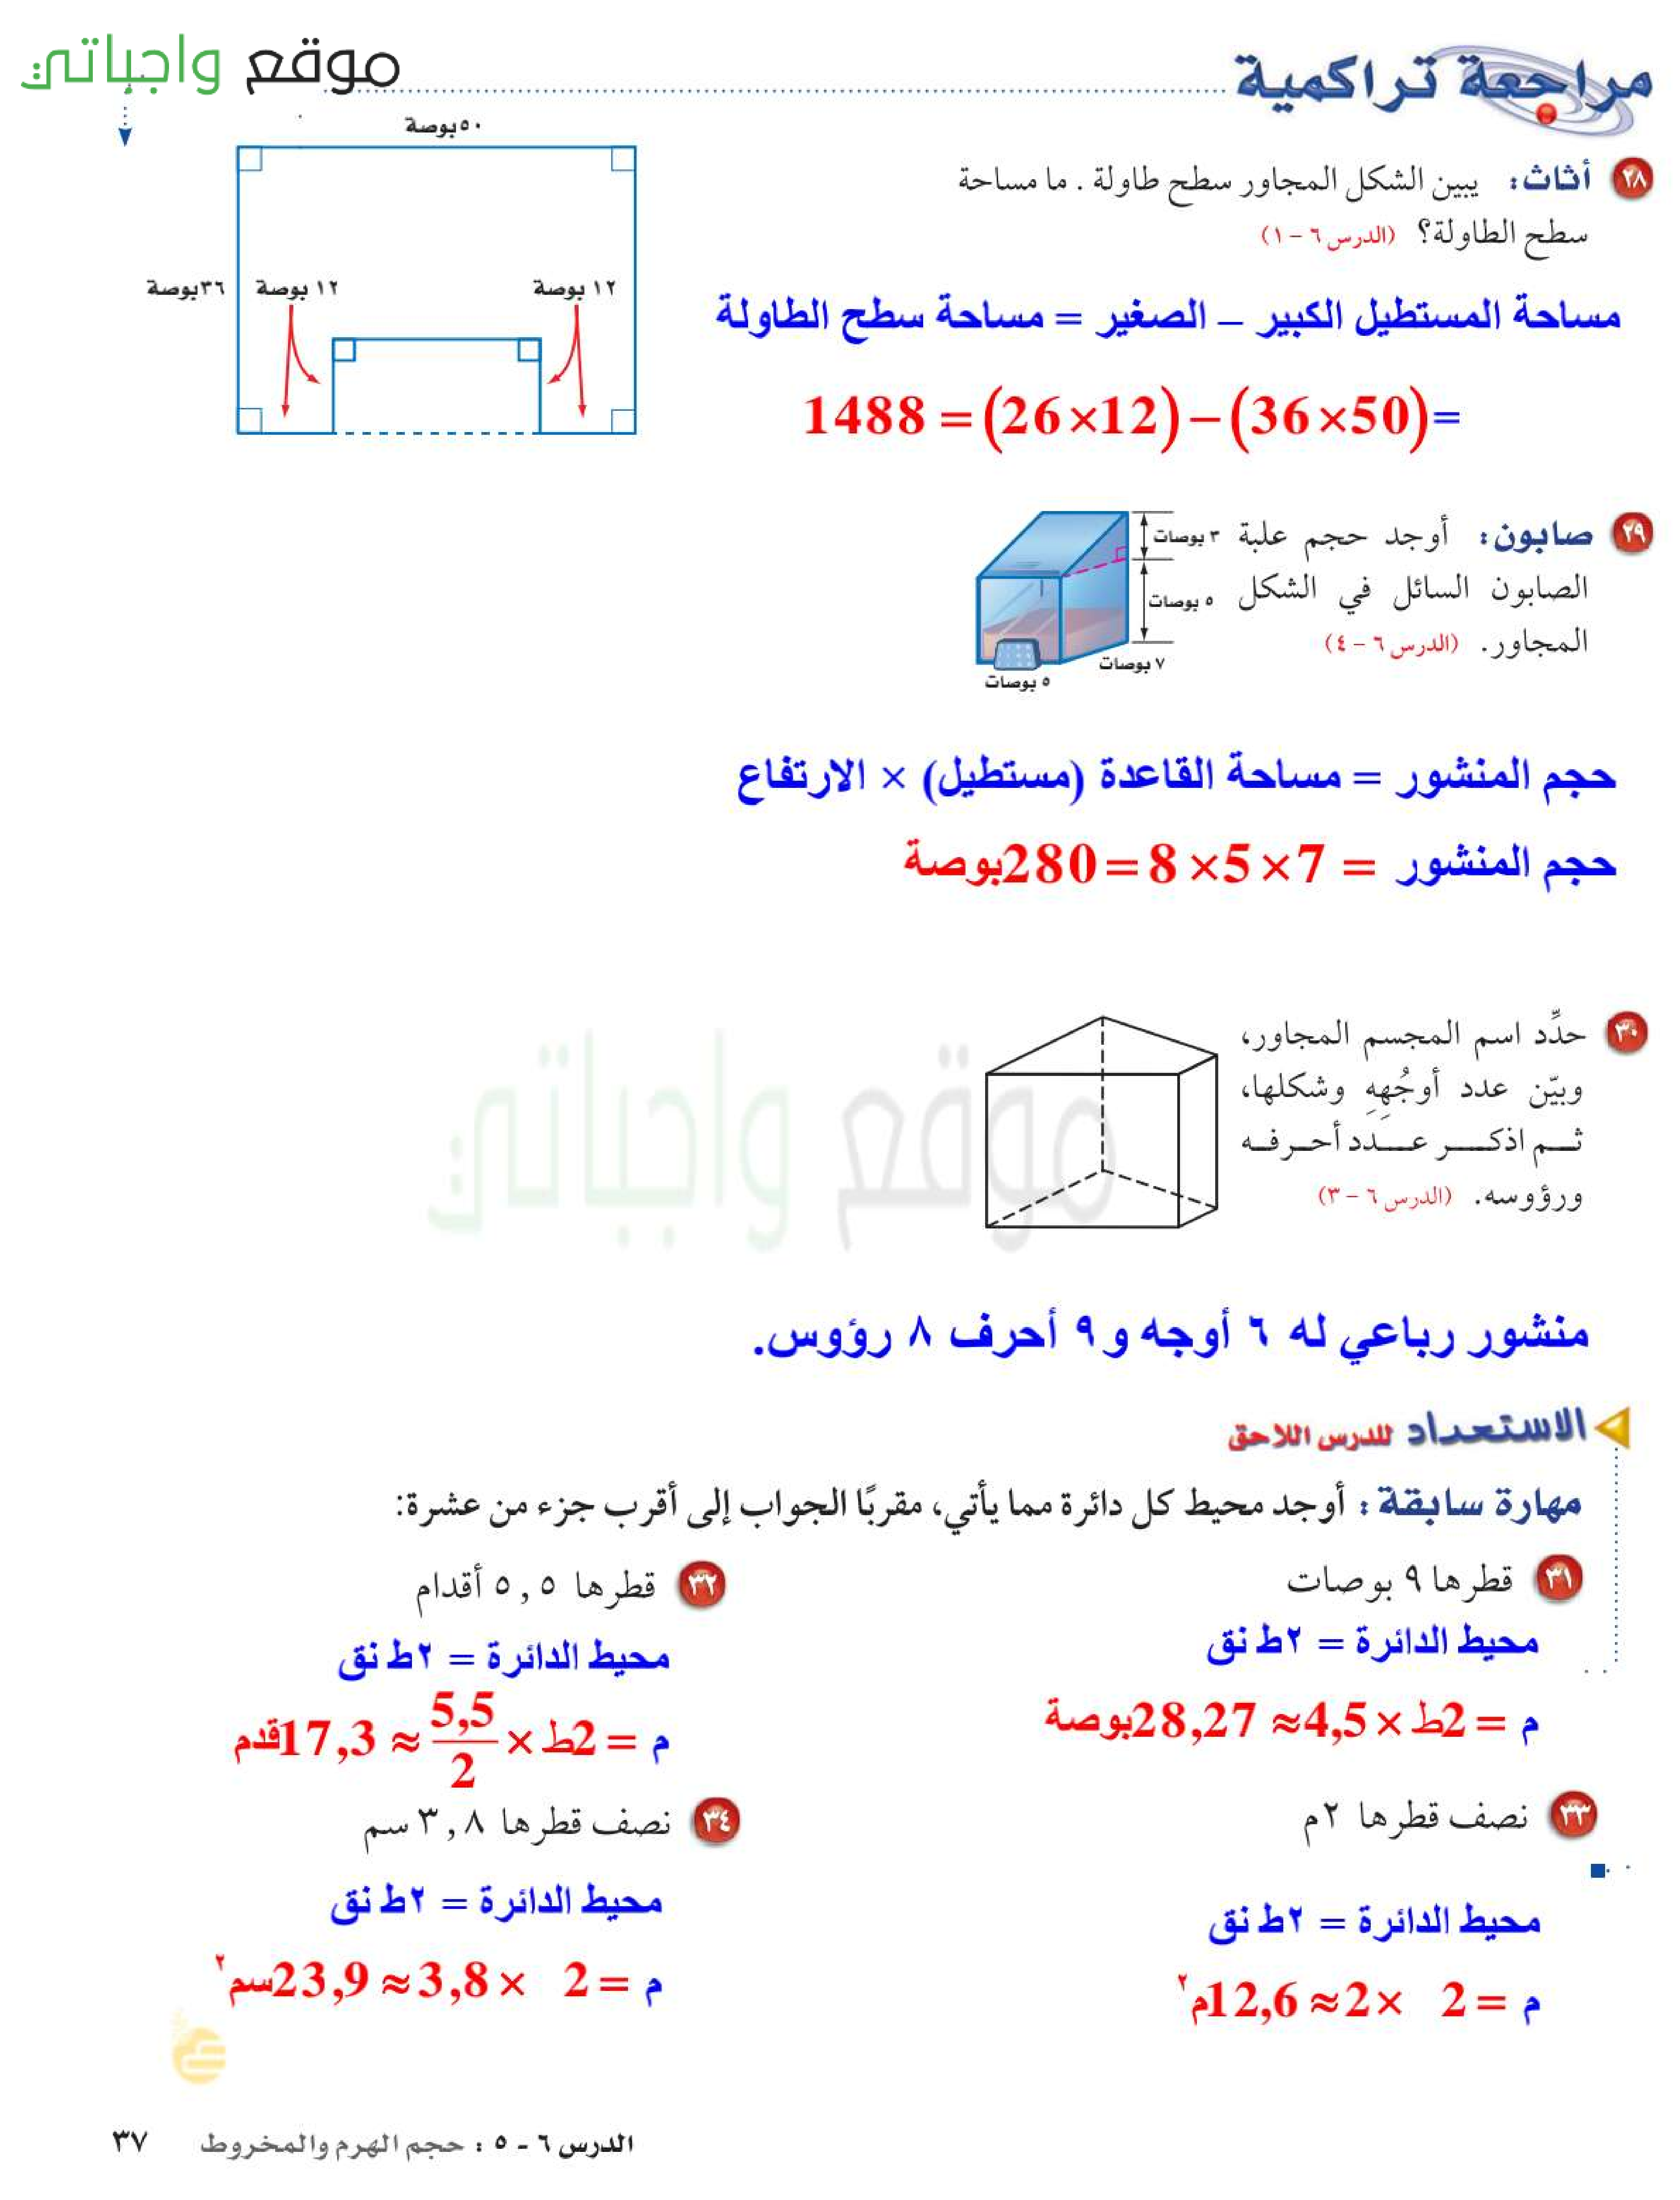 موقع واجباتي
مراجعة تراكمية
٢٨ أثاث: يبين الشكل المجاور سطح طاولة . ما مساحة
سطح الطاولة؟ (الدرس ٦ – ١)
٥٠ بوصة
٣٦ بوصة
١٢ بوصة
١٢ بوصة
مساحة المستطيل الكبير – الصغير = مساحة سطح الطاولة
1488 = (26×12) – (36×50)=
٢٩ صابون: أوجد حجم علبة
الصابون السائل في الشكل
المجاور. (الدرس ٦ – ٤)
٣ بوصات
٥ بوصات
٧ بوصات
٥ بوصات
حجم المنشور = مساحة القاعدة (مستطيل) × الارتفاع
حجم المنشور = 7×5×8=280بوصة
٣٠ حدِّد اسم المجسم المجاور،
وبيّن عدد أوجُهِهِ وشكلها،
ثم اذكر عدد أحرفه
ورؤوسه. (الدرس ٦ – ٣)
موقع واجباتي
منشور رباعي له ٦ أوجه و ٩ أحرف ٨ رؤوس.
الاستعداد للدرس اللاحق
مهارة سابقة : أوجد محيط كل دائرة مما يأتي، مقربًا الجواب إلى أقرب جزء من عشرة:
٣١ قطرها ٩ بوصات
محيط الدائرة = ٢ط نق
م = 2ط × 4,5≈ 28,27بوصة
٣٢ قطرها ٥,٥ أقدام
محيط الدائرة = ٢ط نق
م = 2ط × 5,5/2 ≈ 17,3قدم
٣٣ نصف قطرها ٢م
محيط الدائرة = ٢ط نق
م = 2 ×2≈ 12,6م٢
٣٤ نصف قطرها ٣,٨ سم
محيط الدائرة = ٢ط نق
م = 2 × 3,8≈ 23,9سم٢
الدرس ٦ - ٥ : حجم الهرم والمخروط ٣٧